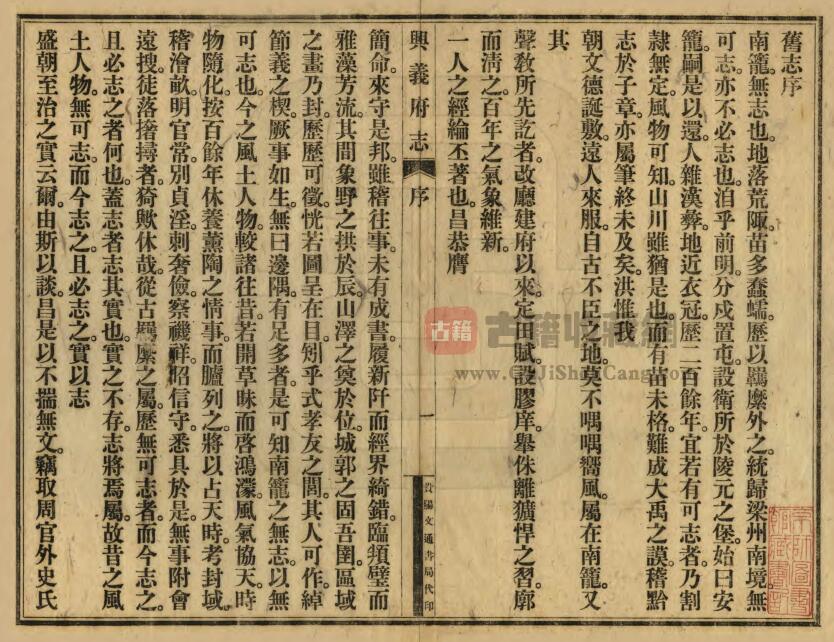 舊志序
南籠無志也地落荒陬苗多蠢蠕歷以羈縻外之統歸梁州南境無
可志亦不必志也洎乎前明分戍置屯設衛所於陵元之堡始曰安
籠嗣是以還人雜漢彝地近衣冠歷二百餘年宜若有可志者乃割
隸無定風物可知山川雖猶是也而有苗未格難成大禹之謨稽黔
志於子章亦屬筆終未及矣洪惟我
朝文德誕敷遠人來服自古不臣之地莫不喁喁嚮風屬在南籠又
其
聲敎所先訖者改廳建府以來定田賦設膠庠舉侏離獷悍之習廓
而淸之百年之氣象維新
一人之經綸丕著也昌恭膺
興義府志
序
一
貴陽文通書局代印
簡命來守是邦雖稽往事未有成書履新阡而經界綺錯臨頖璧而
雅藻芳流其間象野之拱於辰山澤之奠於位城郭之固吾圉區域
之畫乃封歷歷可徵恍若圖呈在目矧乎式孝友之閭其人可作綽
節義之楔厥事如生無曰邊隅有足多者是可知南籠之無志以無
可志也今之風土人物較諸往昔若開草昧而啓鴻濛風氣協天時
物隨化按百餘年休養薰陶之情事而臚列之將以占天時考封域
稽澮畝明官常別貞淫刺奢儉察禨祥昭信守悉具於是無事附會
遠搜徒落撦撏者猗歟休哉從古羈縻之屬歷無可志者而今志之
且必志之者何也蓋志者志其實也實之不存志將焉屬故昔之風
土人物無可志而今志之且必志之實以志
盛朝至治之實云爾由斯以談昌是以不揣無文竊取周官外史氏
古籍
古籍收藏網
www.GuJiShuCang.com